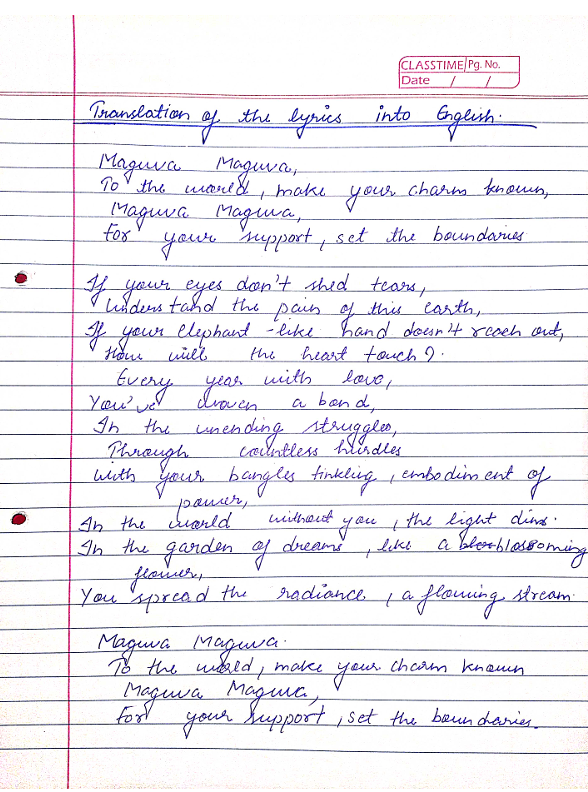 CLASSTIME Pg. No.
Date / /
Translation of the lyrics into English.
Maguva Maguva,
To the world, make your charm known,
Maguva Maguva,
For your support, set the boundaries
If your eyes don't shed tears,
Understand the pain of this earth,
If your elephant-like hand doesn't reach out,
How will the heart touch?
Every year with love,
You've woven a bond,
In the unending struggles,
Through countless hurdles
with your bangles tinkling, embodiment of
power,
In the world without you, the light dims.
In the garden of dreams, like a blossoming
flower,
You spread the radiance, a flowing stream.
Maguva Maguva.
To the world, make your charm known
Maguva Maguva,
For your support, set the boundaries.